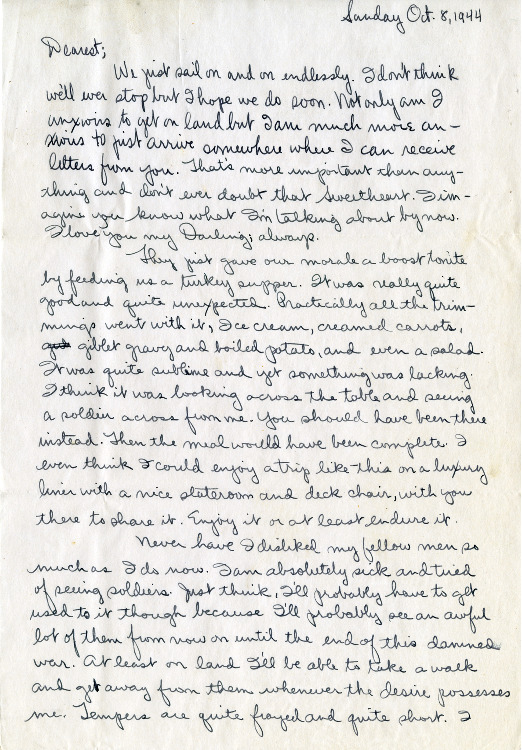 Sunday Oct. 8, 1944
Dearest;
We just sail on and on endlessly. I don't think
we'll ever stop but I hope we do soon. Not only am I
anxoius to get on land but I am much more an-
xoius to just arrive somewhere where I can receive
letters from you. That's more important than any-
thing and don't ever doubt that sweetheart. I im-
agine you know what I'm talking about by now.
I love you my Darling; always.
They just gave our morale a boost tonite
by feeding us a turkey supper. It was really quite
good and quite unexpected. Practically all the trim-
mings went with it, Ice cream, creamed carrots,
giblet gravy and boiled potato, and even a salad.
It was quite sublime and yet something was lacking.
I think it was looking across the table and seeing
a soldier across from me. You should have been there
instead. Then the meal would have been complete. I
even think I could enjoy a trip like this on a luxury
liner with a nice stateroom and deck chair, with you
there to share it. Enjoy it or at least endure it.
Never have I disliked my fellow men so
much as I do now. I am absolutely sick and tired
of seeing soldiers. Just think, I'll probably have to get
used to it though because I'll probably see an awful
lot of them from now on until the end of this damned
war. At least on land I'll be able to take a walk
and get away from them whenever the desire possesses
me. Tempers are quite frayed and quite short. I